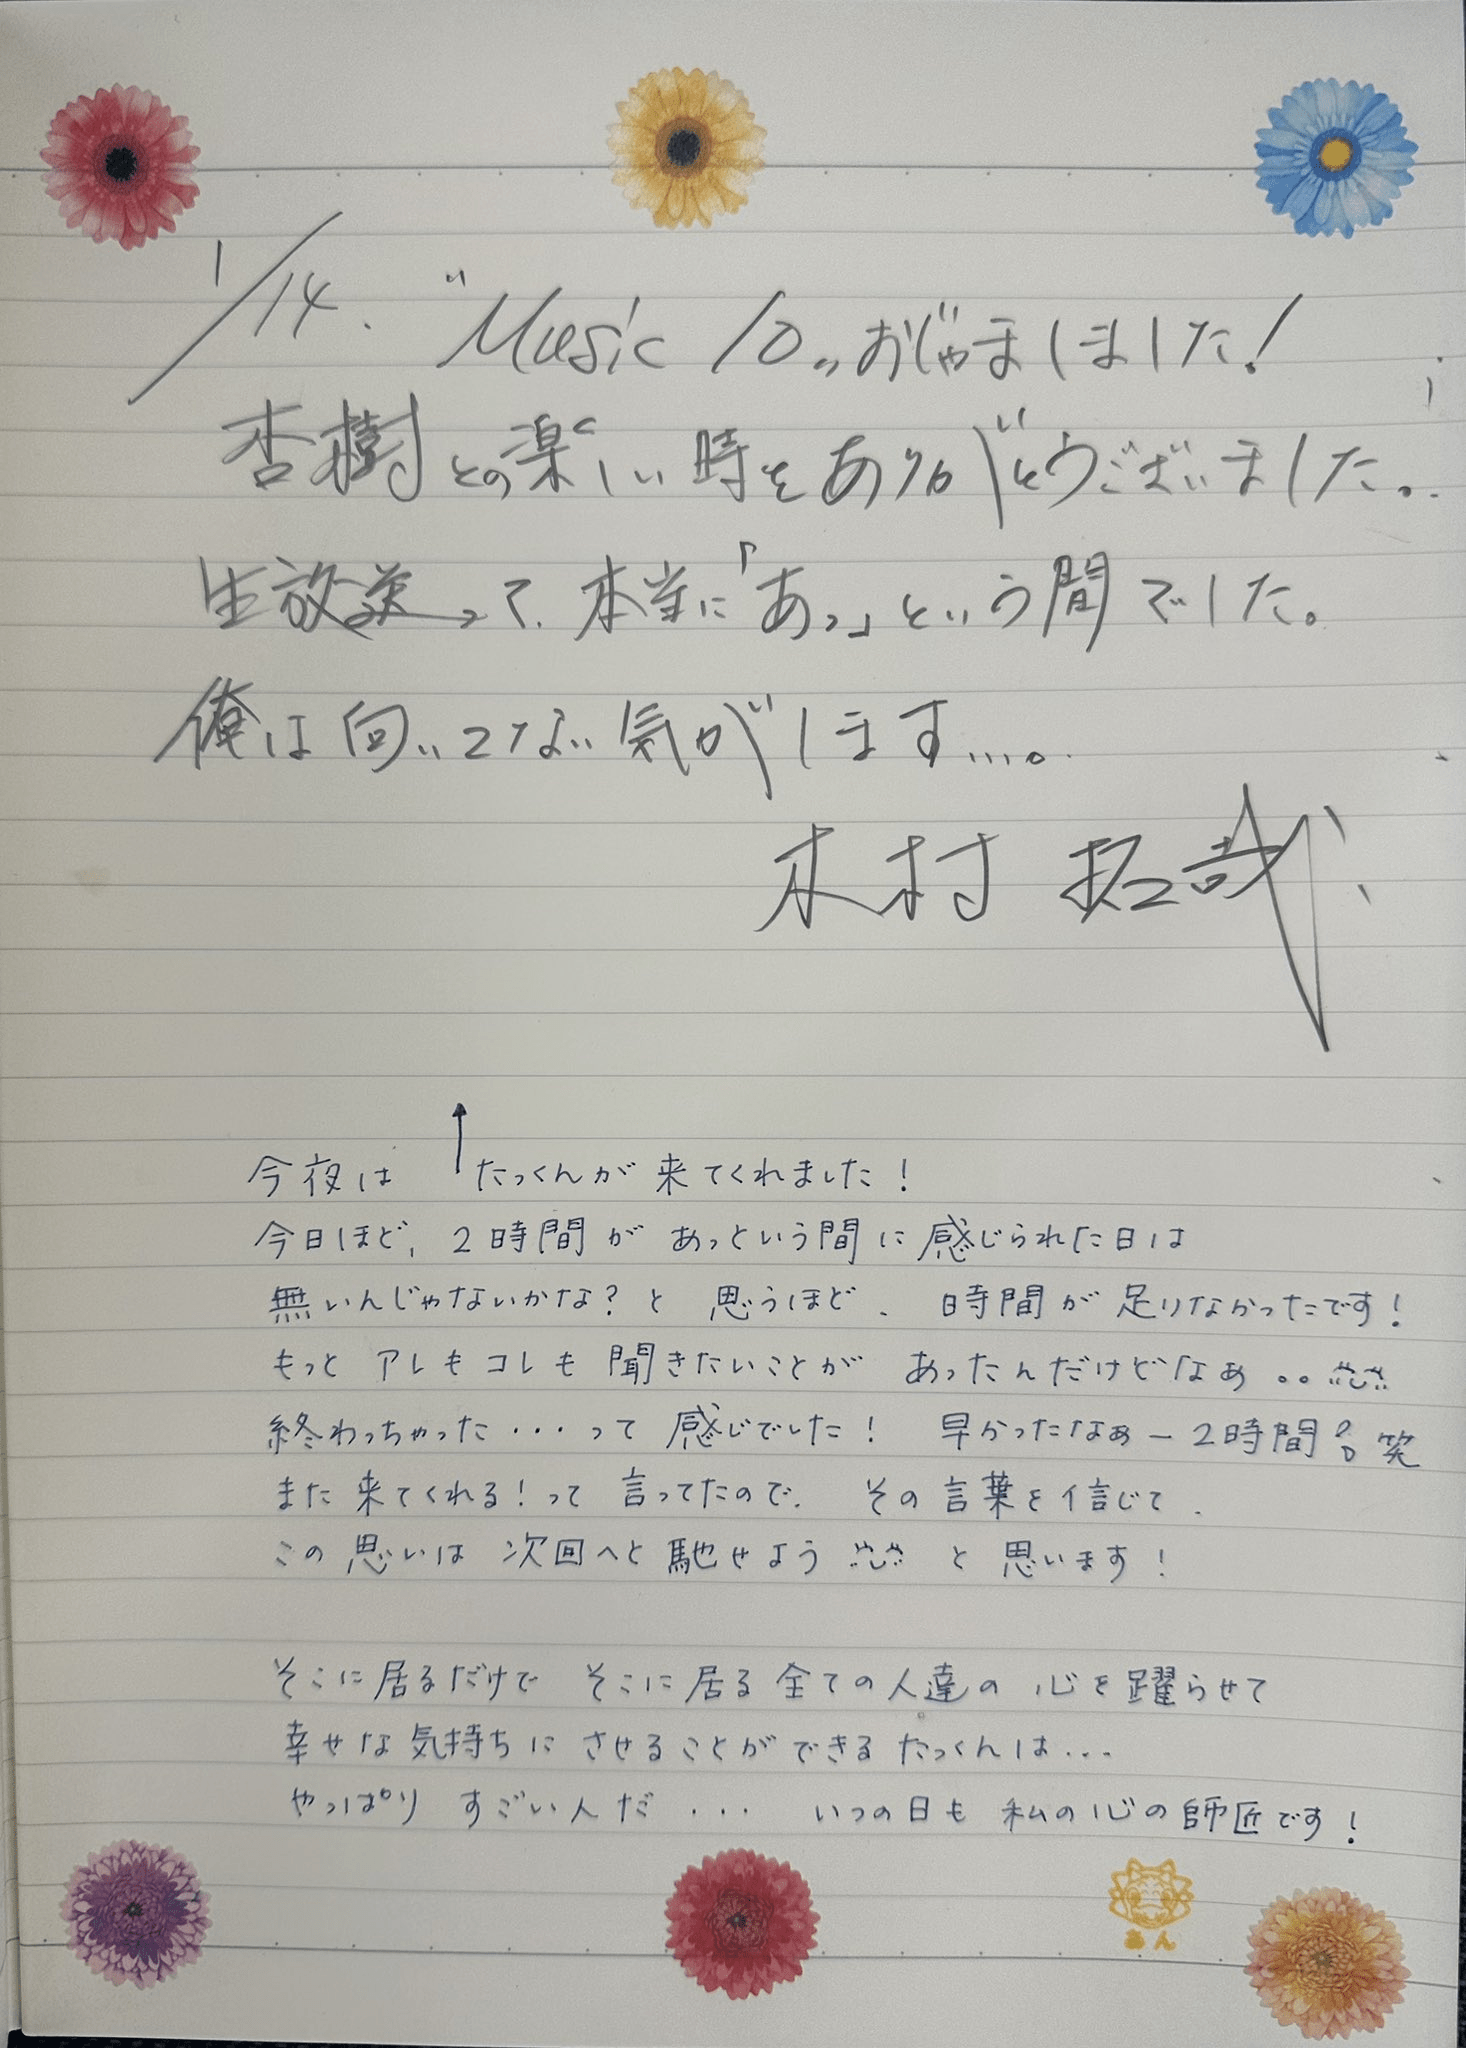 1/14. "Music 10" おじゃましました!
杏樹との楽しい時をありがとうございました。
生放送って、本当に「あっ」という間でした。
俺は向いてない気がします…。
木村 拓哉
↑
今夜は たっくんが来てくれました!
今日ほど、2時間が あっという間に感じられた日は
無いんじゃないかな?と 思うほど、時間が足りなかったです!
もっと アレもコレも 聞きたいことが あったんだけどなぁ。。
終わっちゃった・・・って 感じでした! 早かったなぁー2時間 笑
また来てくれる!って 言ってたので、その言葉を信じて、
この思いは 次回へと馳せよう と思います!
そこに居るだけで そこに居る全ての人達の 心を躍らせて
幸せな気持ちに させることができるたっくんは...
やっぱり すごい人だ・・・ いつの日も 私の心の師匠です!
あん